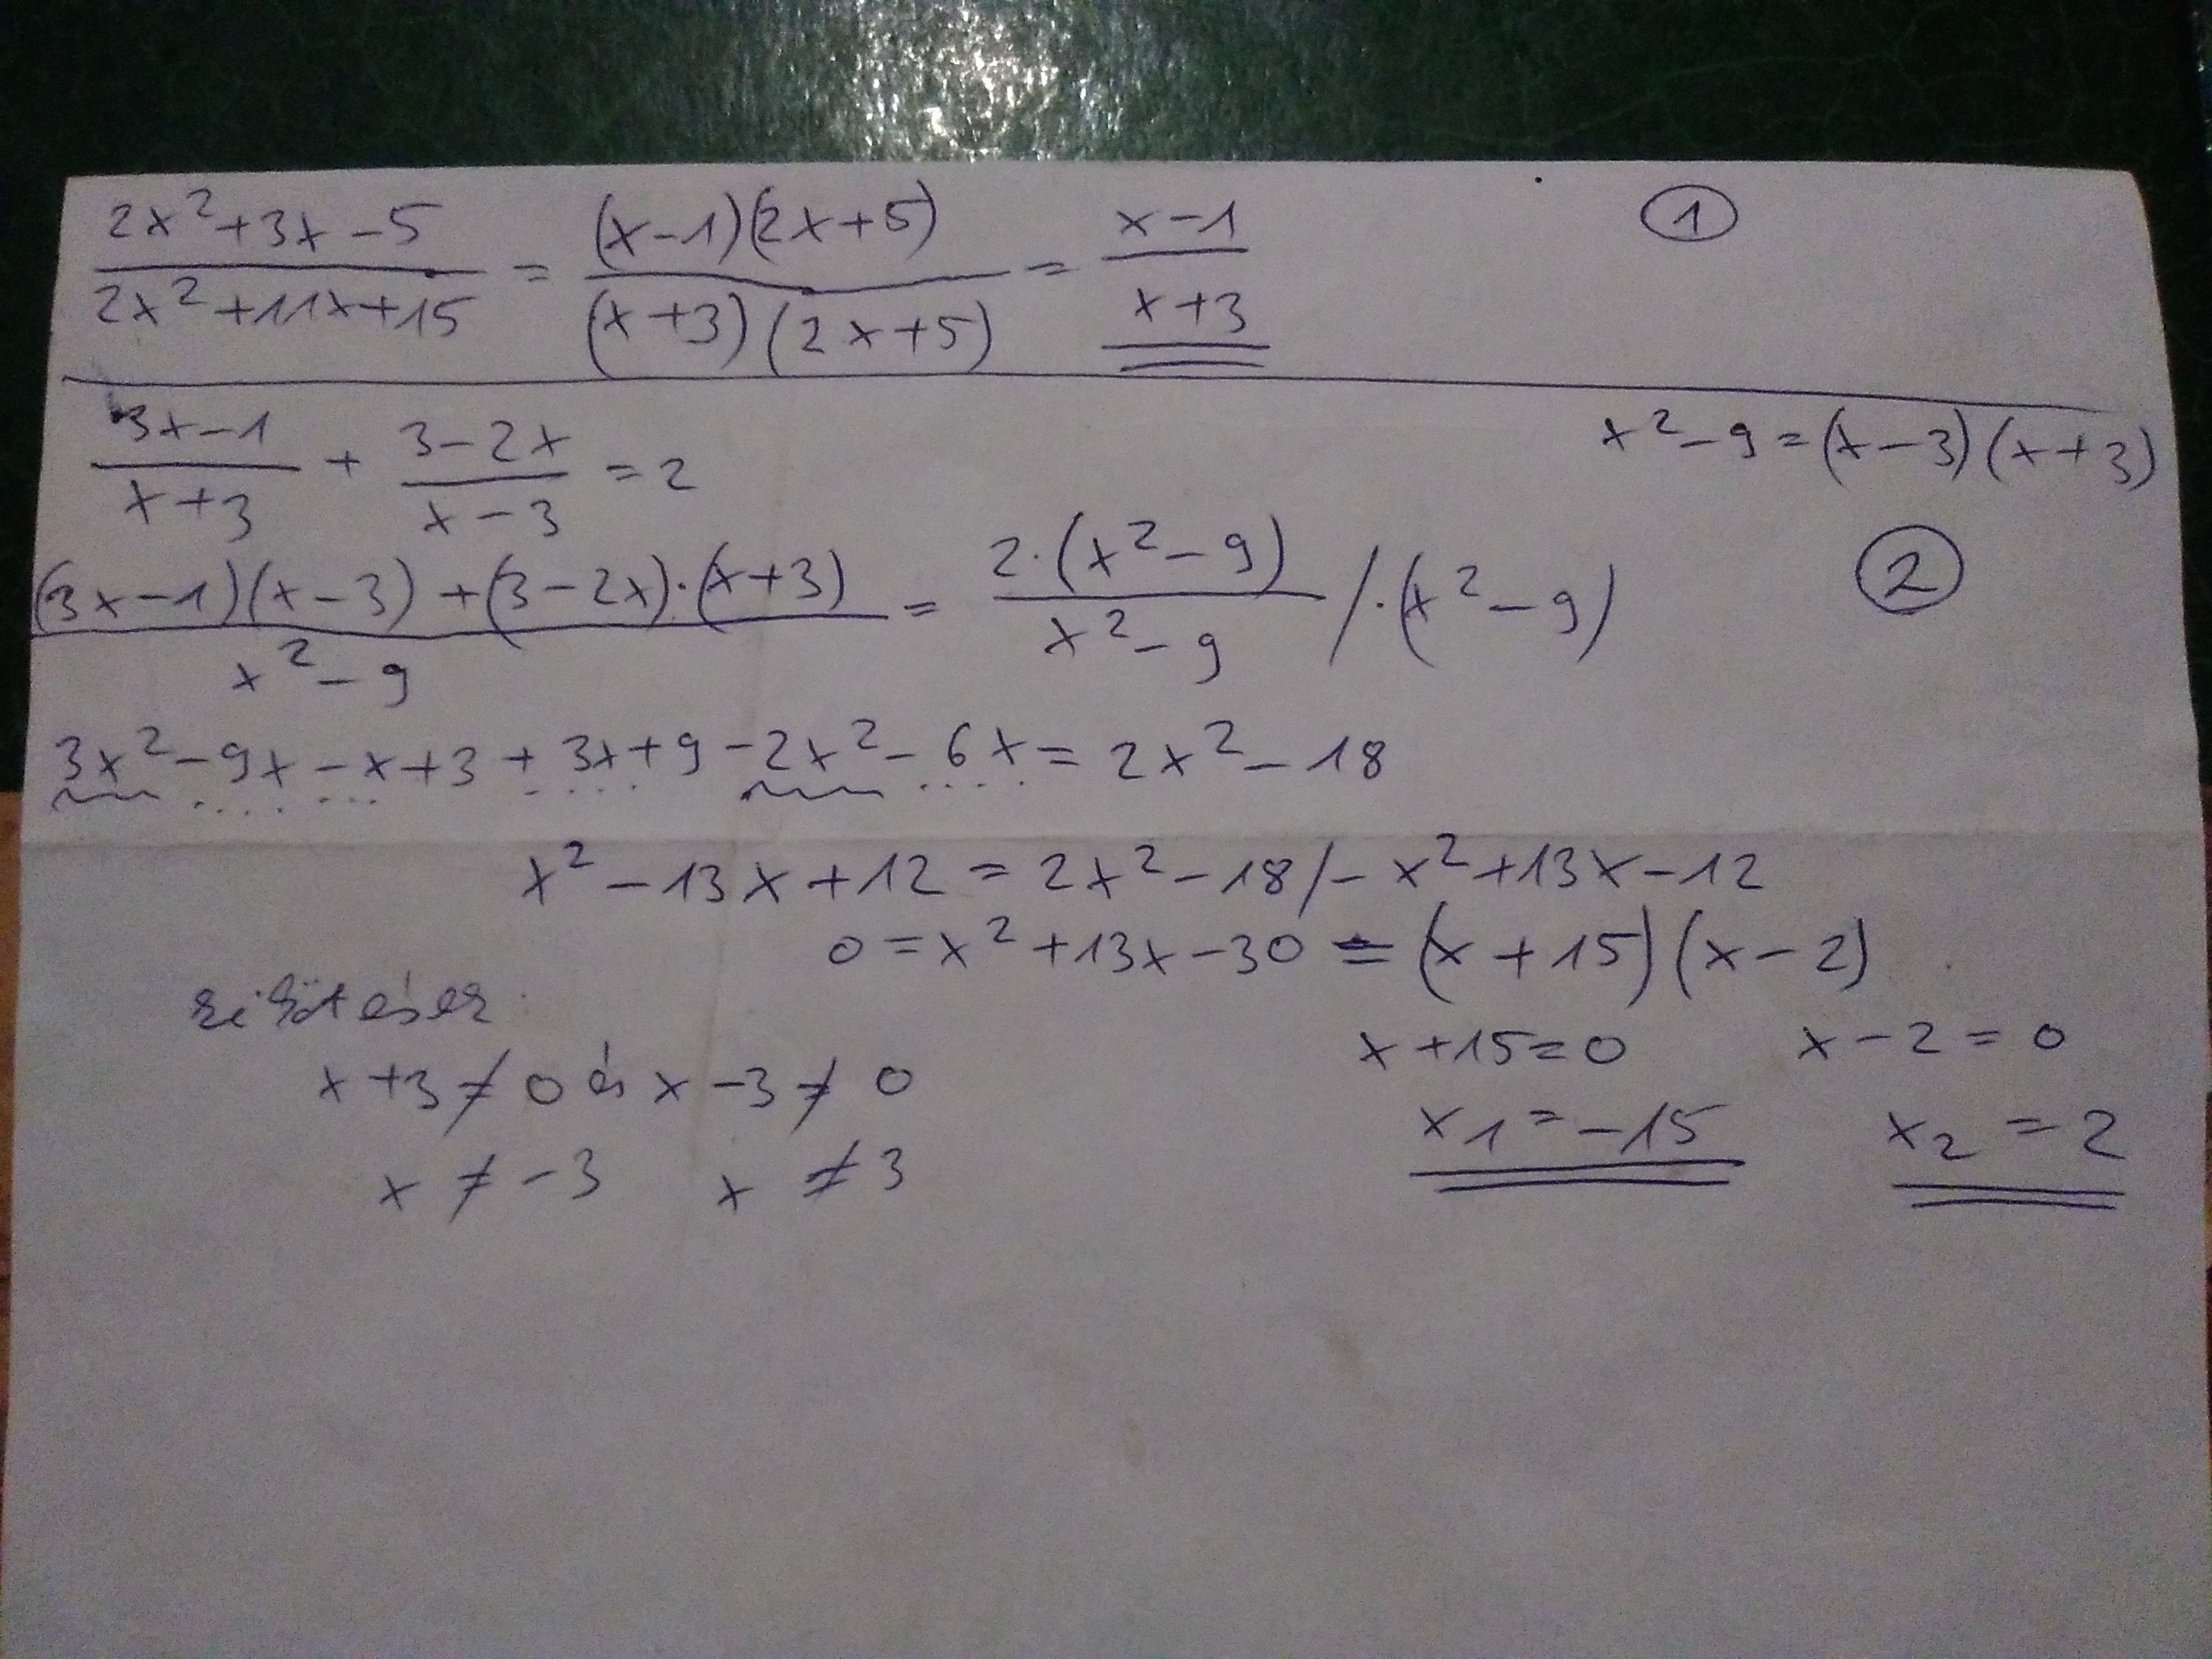 (2x²+3x-5)/(2x²+11x+15) = ((x-1)(2x+5))/((x+3)(2x+5)) = (x-1)/(x+3) ①
(3x-1)/(x+3) + (3-2x)/(x-3) = 2 x²-9=(x-3)(x+3)
((3x-1)(x-3)+(3-2x)·(x+3))/(x²-9) = (2·(x²-9))/(x²-9) /·(x²-9) ②
3x²-9x-x+3+3x+9-2x²-6x=2x²-18
x²-13x+12=2x²-18/-x²+13x-12
0=x²+13x-30=(x+15)(x-2)
kikötések:
x+15=0 x-2=0
x+3≠0 és x-3≠0
x₁=-15 x₂=2
x≠-3 x≠3